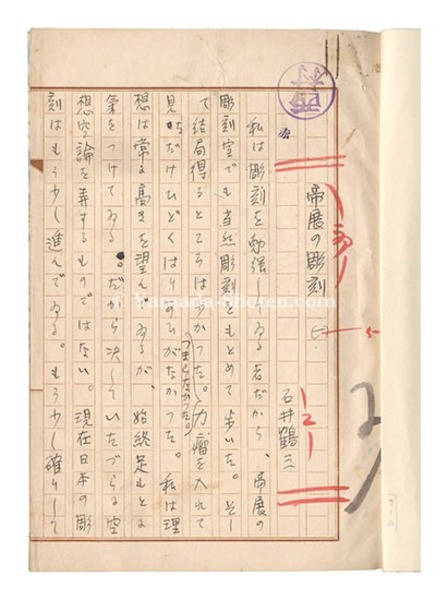 帝展の彫刻
石井鶴三
私は彫刻を勉強してゐる者だから、帝展の
彫刻室でも当然彫刻をもとめて歩いた。そし
て結局得るところは少かつた。力瘤を入れて
つまらなかつた。
見ただけひどくはりあひがなかつた。私は理
想は常に高きを望んでゐるが、始終足もとに
氣をつけてゐる。だから决していたづらな空
想空論を弄するものではない。現在日本の彫
刻はもう少し進んでゐる。もう少し確りして
© Yamada-Shoten.com